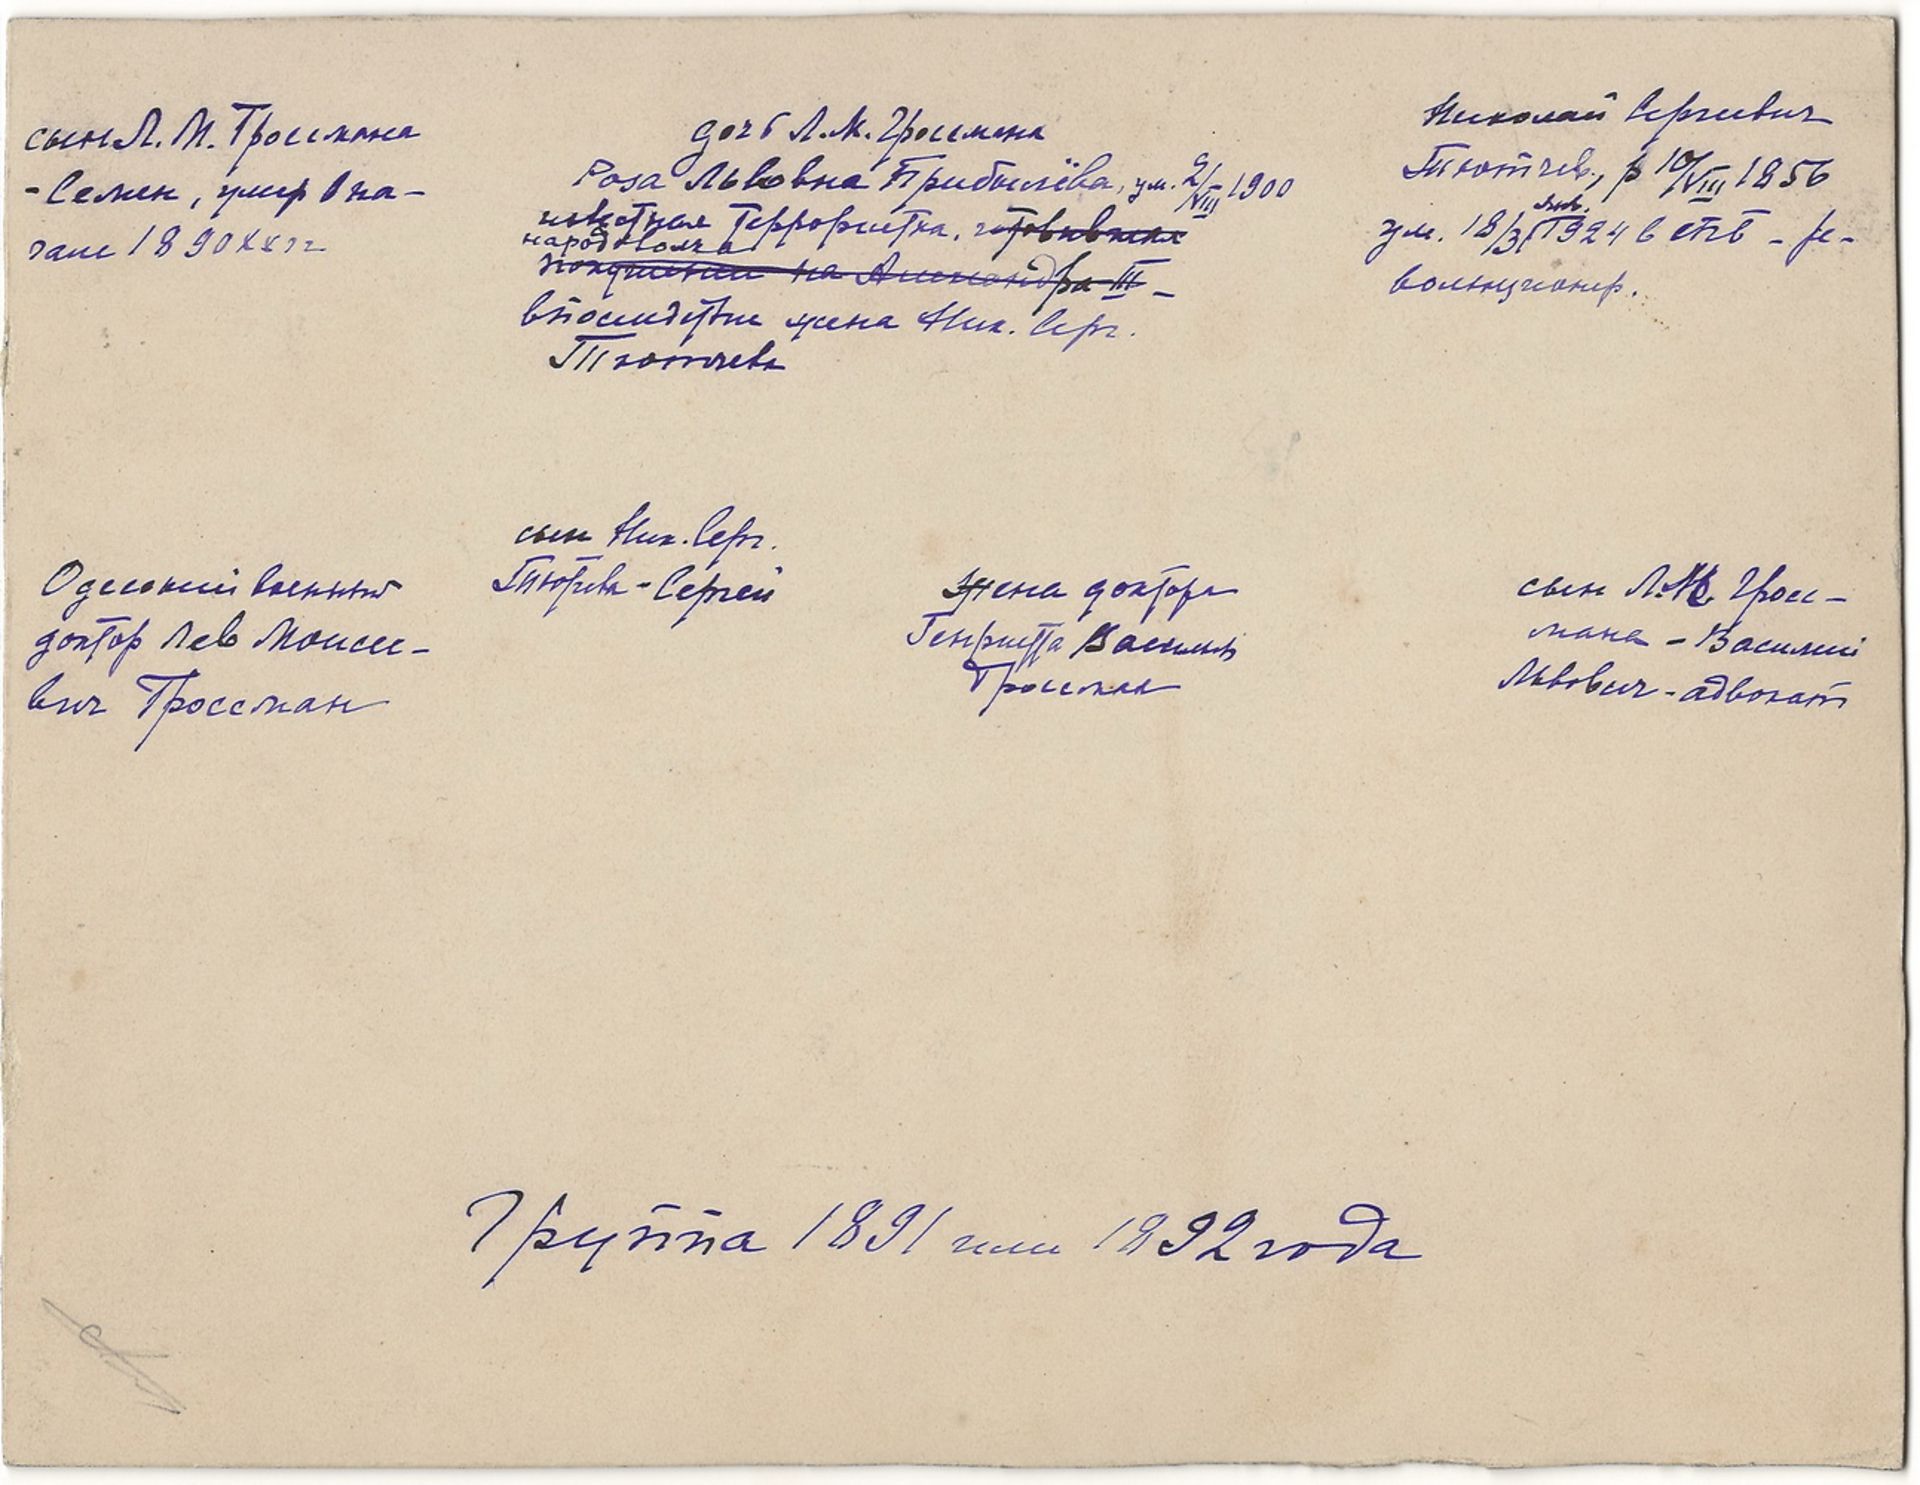 сын Л. М. Гроссмана
- Семен, умер в на-
чале 1890хх гг
дочь Л. М. Гроссмана
Роза Львовна Прибылёва, ум. 2/VIII 1900
известная террористка, готовившая
народоволка
покушение на Александра III -
впоследствие жена Ник. Серг.
Тютчева
Николай Сергеевич
Тютчев, р 10/VIII 1856
янв.
ум. 18/31 1924 в СПБ - ре-
волюционер.
Одесский военный
доктор Лев Моисее-
вич Гроссман
сын Ник. Серг.
Тютчева - Сергей
жена доктора
Генриетта Васильевна
Гроссман
сын Л. М. Гросс-
мана - Василий
Львович - адвокат
Группа 1891 или 1892 года